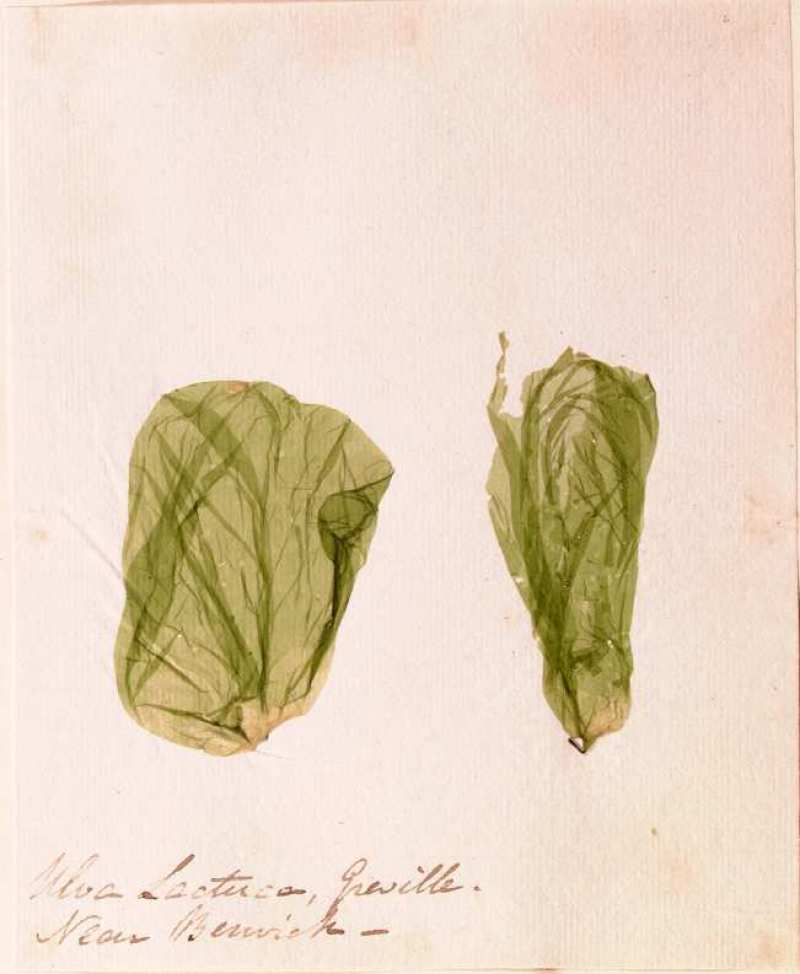 Ulva Lactuca, Greville.
Near Berwick –